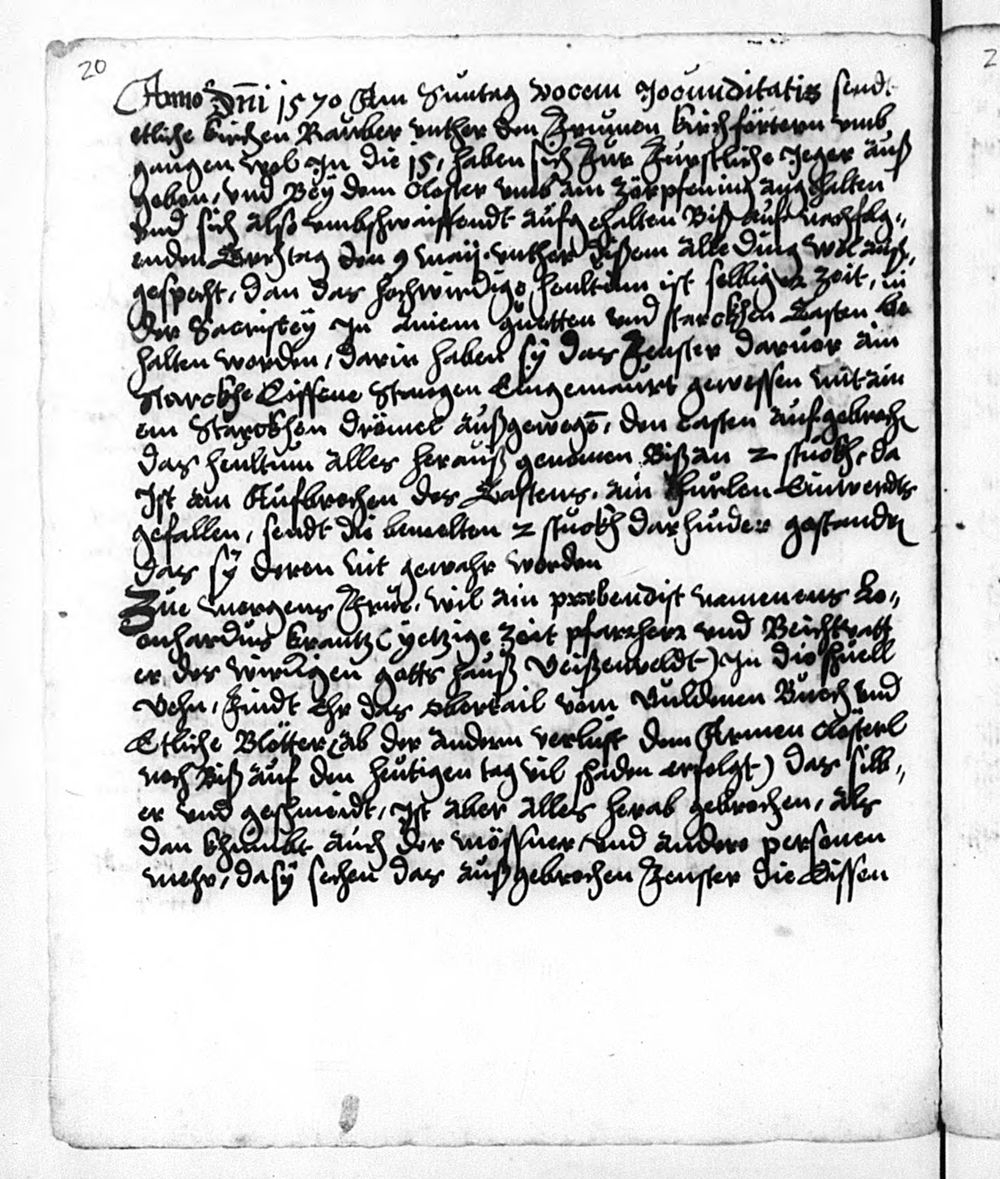 20
Anno Dñi 1570 Am Suntag vocem Jocunditatis sendt
etliche kirchen Rauber vnther den frumen kirchförtern vmb
gangen wol Jn die 15, haben sich für Fürstliche Jeger auß
geben, vnd Beÿ dem Closter vmb ain zörpfening angehalten
vnd sich also vmbschwaiffendt aufgehalten Biß auf nachfolg,,
enden Erchtag den 9 maij. vnther dißem alle ding wol auß,,
gespecht, dan das hochwirdige heultum ist selbiger Zeit, in
der Sacristeÿ Jn ainem guetten vnd starckhen Casten be
halten worden, darin haben sÿ das Fenster daruor ain
Starckhe Eissene Stangen Eingemaurt gewessen mit ain
em Starckhen drömel außgewegō, den Casten aufgebroche
das heultum alles herauß genomen Biß an 2 stuckh, da
Jst am Aufbrechen des Castens, ain thürlen Einwerdts
gefallen, sendt die bemelten 2 stuckh darhinder gestanden
das sÿ deren nit gewahr worden
Zue morgens Frue, wil ain præbendist namenens Le,,
onhardus Krantz (yetzige Zeit pfarrherr vnd Beichtvatt
er des wirdigen gotts hauß Seißenveldt) Jn die schuell
gehn, findt Ehr das obertail vom Guldenen Buech vnd
Etliche Blötter (ab der andern verlust dem Armen Clösterl
noch Biß auf den heutigen tag vil schaden erfolgt) das silb,,
er vnd geschmeidt, Jst aber alles herab gebrochen, als
dan khumbt auch der mössner vnd andere personen
mehr, da sÿ sechen das außgebrochen Fenster die Eissen